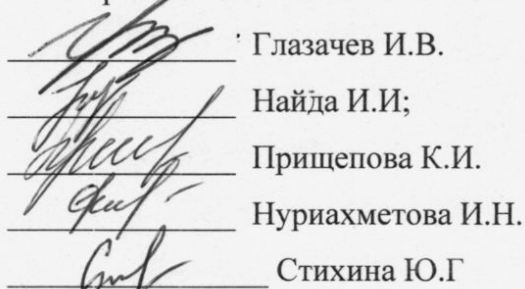 Глазачев И.В.
Найда И.И;
Прищепова К.И.
Нуриахметова И.Н.
Стихина Ю.Г